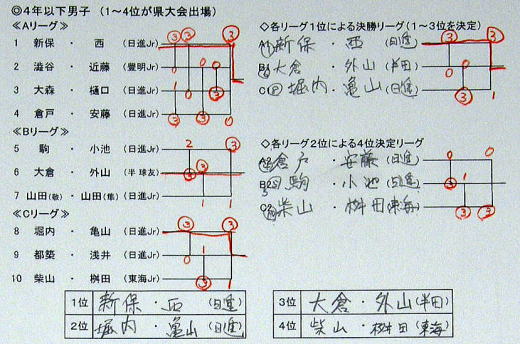 ◎4年以下男子 (1～4位が県大会出場)
≪Aリーグ≫
1 新保 ・ 西 (日進Jr) ③ ③ ③
2 澁谷 ・ 近藤 (豊明Jr) 0 0 0
3 大森 ・ 樋口 (日進Jr) 1 0 ③
4 倉戸 ・ 安藤 (日進Jr) ③ ③ 0
≪Bリーグ≫
5 駒 ・ 小池 (日進Jr) 2 ③
6 大倉 ・ 外山 (半 球友) ③ ③
7 山田(敬) ・ 山田(隼) (日進Jr) 1 1
≪Cリーグ≫
8 堀内 ・ 亀山 (日進Jr) ③ ③
9 都築 ・ 浅井 (日進Jr) 0 1
10 柴山 ・ 桝田 (東海Jr) ③ 1
◇各リーグ1位による決勝リーグ (1～3位を決定)
新保 ・ 西 (日進) ③ ③
大倉 ・ 外山 (半田) 0 0
堀内 ・ 亀山 (日進) ③ 1
◇各リーグ2位による4位決定リーグ
倉戸 ・ 安藤 (日進) 0 0
駒 ・ 小池 (日進) ③ 1
柴山 ・ 桝田 (東海) ③ ③
1位 新保 ・ 西 (日進)
2位 堀内 ・ 亀山 (日進)
3位 大倉 ・ 外山 (半田)
4位 柴山 ・ 桝田 (東海)